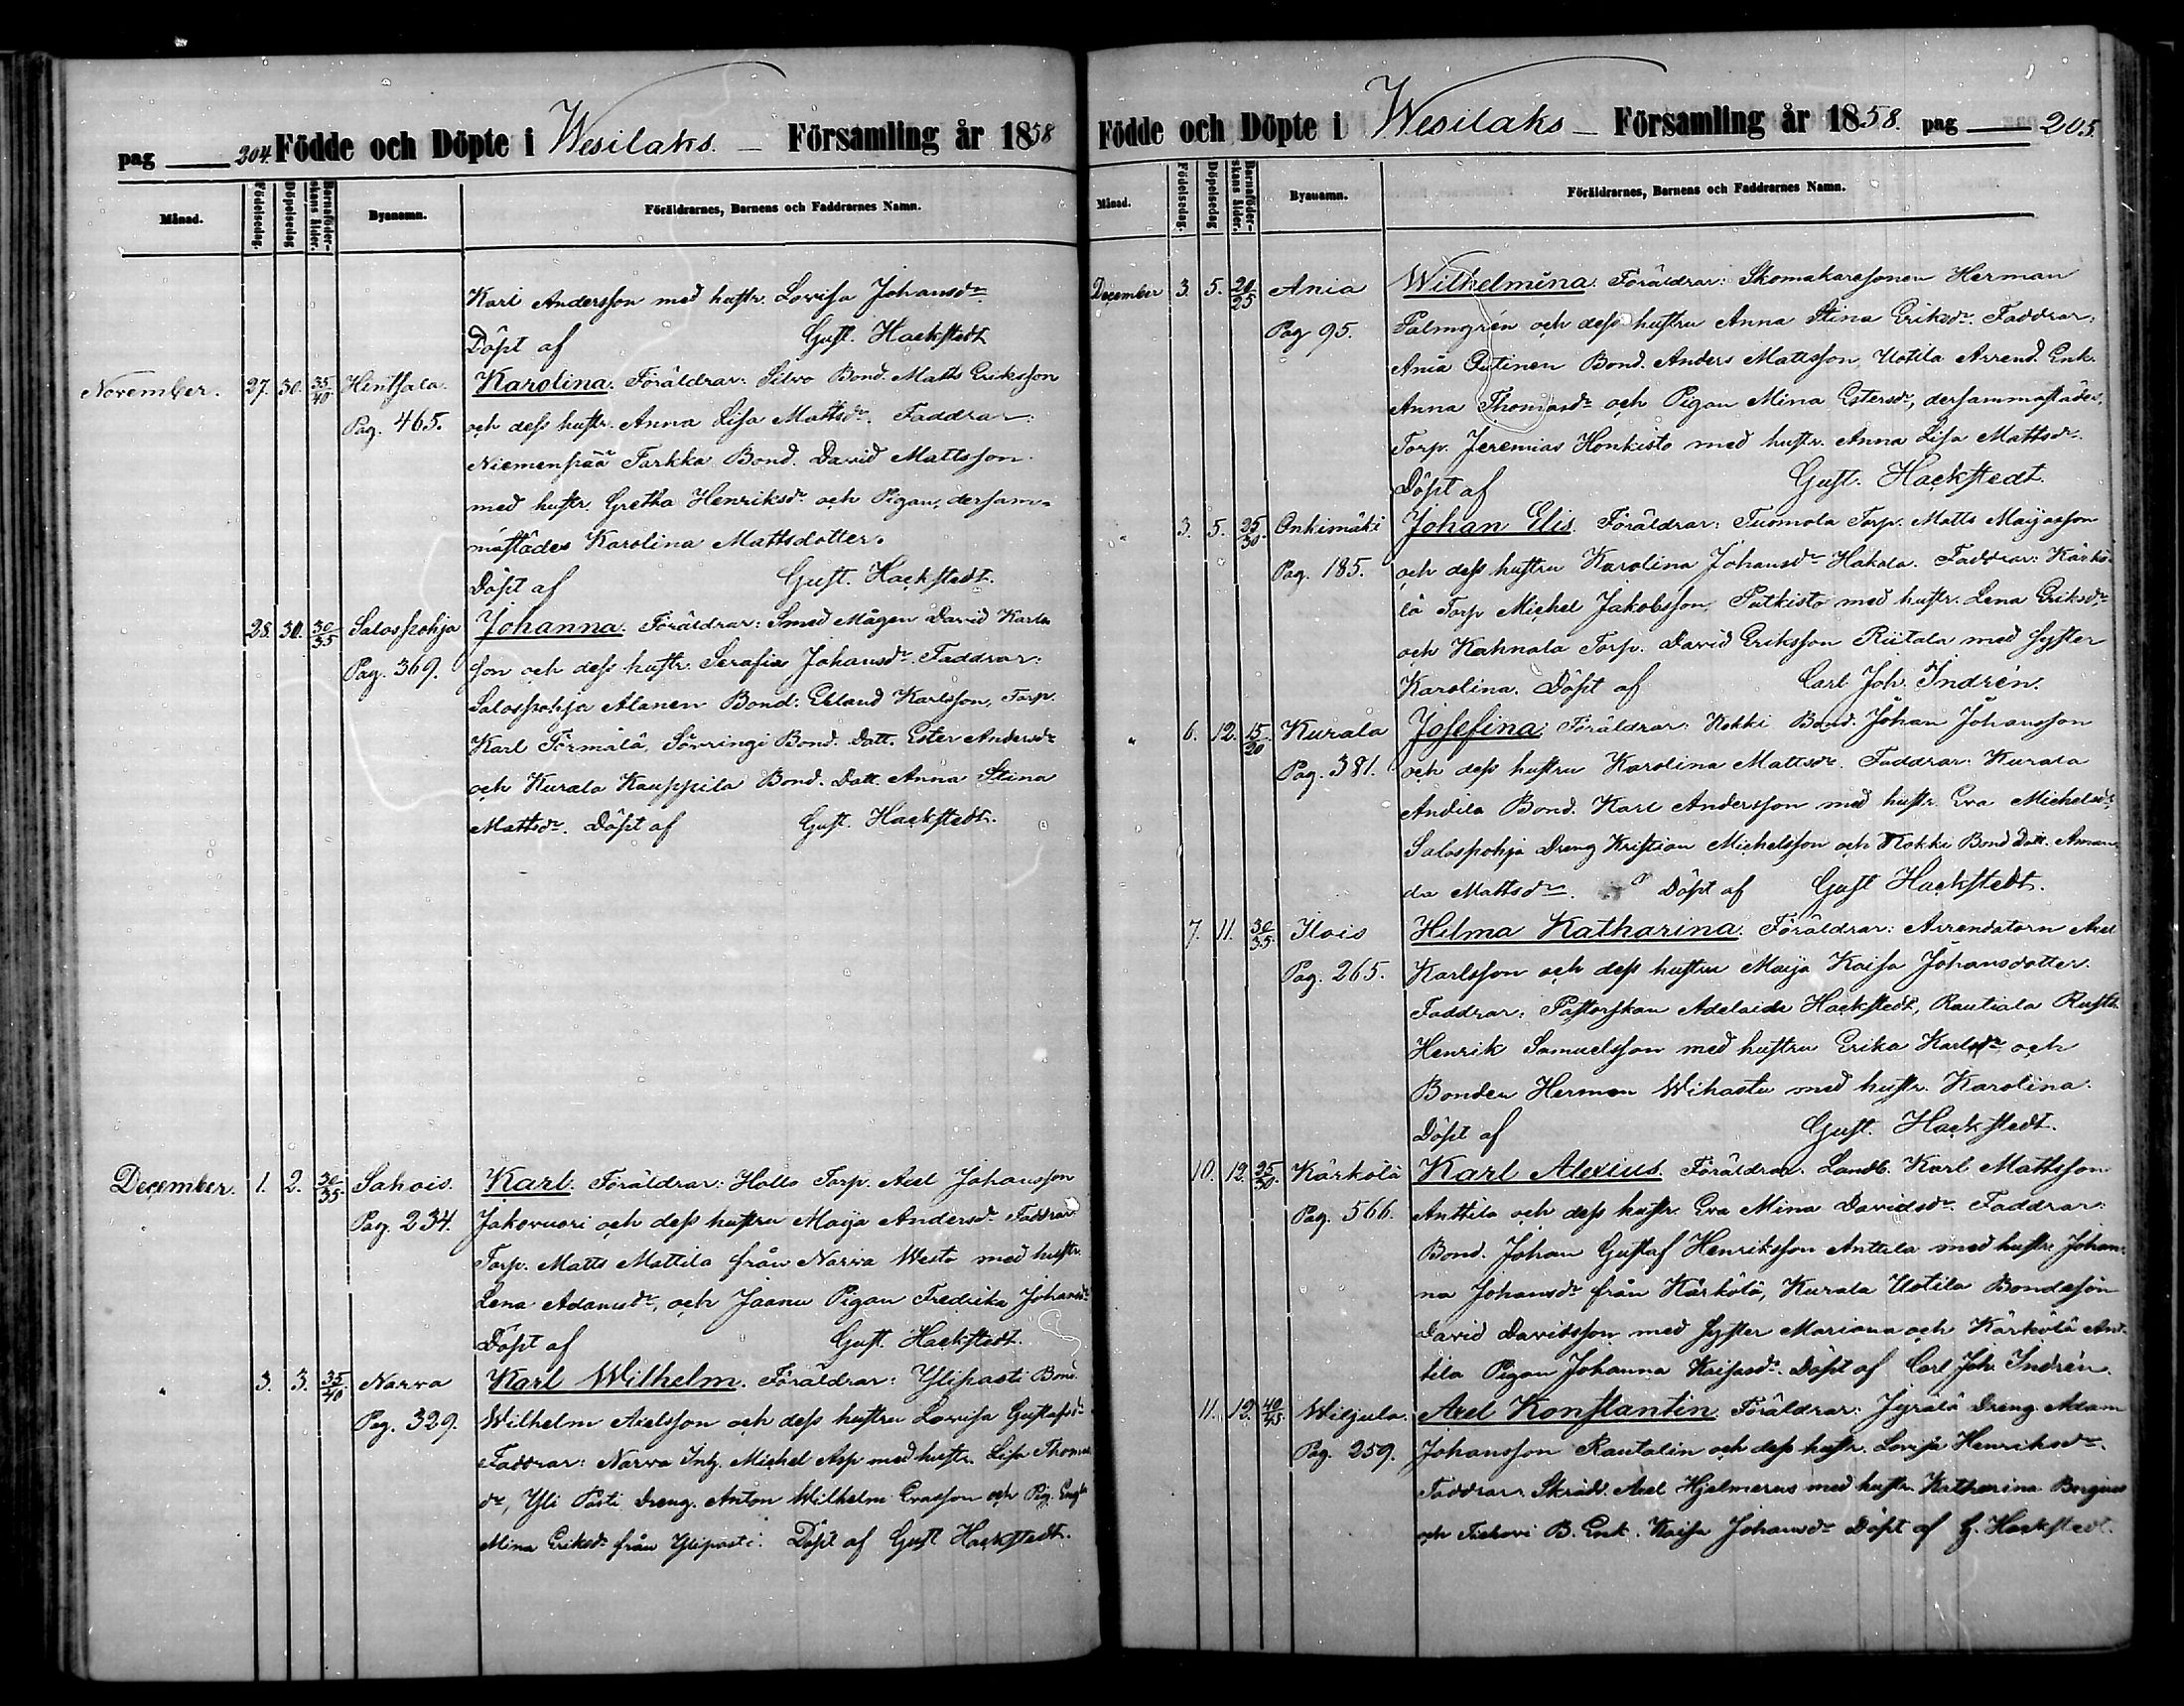 pag 204. Födde och Döpte i Wesilaks. Församling år 1858
Månad. Födelsedag. Döpelsedag Barnaföderskans ålder. Byanamn. Föräldrarnes, Barnens och Faddrarnes Namn.
Karl Andersson med hustr. Lovisa Johansdr
Döpt af Gust. Hackstedt
November. 27. 30. 35/40 Hinsala. Karolina. Föräldrar: Silvo Bond. Matts Eriksson
Pag. 465. och dess hustr. Anna Lisa Mattsdr. Faddrar:
Niemenpää Tarkka Bond. David Mattsson
med hustr. Gretha Henriksdr och Pigan, dersam-
mastädes Karolina Mattsdotter.
Döpt af Gust. Hackstedt.
28. 30. 30/35 Salospohja Johanna. Föräldrar: Smed Mågen David Karls-
Pag. 369. son och dess hustr. Serafia Johansdr. Faddrar:
Salospohja Alanen Bond. Erland Karlsson, Torp.
Karl Törmälä, Sorringi Bond. Dott. Ester Andersdr
och Kurala Kauppila Bond. Dott. Anna Stina
Mattsdr. Döpt af Gust. Hackstedt.
December. 1. 2. 30/35 Sahois. Karl. Föräldrar: Hollo Torp. Axel Johansson
Pag. 234. Jakovuori och dess hustru Maija Andersdr. Faddrar
Torp. Matts Mattila från Narva Westo med hustr.
Lena Adamsdr, och Jaanu Pigan Fredrika Johansdr
Döpt af Gust. Hackstedt.
" 3. 3. 35/40 Narva Karl Wilhelm. Föräldrar: Ylipasti Bond.
Pag. 329. Wilhelm Axelsson och dess hustru Lovisa Gustafsdr
Faddrar: Narva Inh. Michel Asp med hustr. Lisa Thomas
dr, Yli Pasti Dreng. Anton Wilhelm Evasson och Pig. Engla
Mina Eriksdr från Ylipasti. Döpt af Gust Hackstedt.
Födde och Döpte i Wesilaks Församling år 1858. pag 205.
Månad. Födelsedag. Döpelsedag Barnaföderskans ålder. Byanamn. Föräldrarnes, Barnens och Faddrarnes Namn.
December 3. 5. 20/25 Ania Wilhelmina. Föräldrar: Skomakaresonen Herman
Pag 95. Palmgrén och dess hustru Anna Stina Eriksdr. Faddrar:
Ania Putinen Bond. Anders Mattsson, Uotila Arrend. Enk.
Anna Thomasdr och Pigan Mina Estersdr, dersammastädes,
Torp. Jeremias Honkisto med hustr. Anna Lisa Mattsdr.
Döpt af Gust. Hackstedt.
" 3. 5. 25/30 Onkimäki Johan Elis. Föräldrar: Tuomola Torp. Matts Maijasson
Pag. 185. och dess hustru Karolina Johansdr Hakala. Faddrar: Kärkö-
lä Torp Michel Jakobsson Putkisto med hustr. Lena Eriksdr
och Kahnala Torp. David Eriksson Riitala med syster
Karolina. Döpt af Carl Joh. Indrén.
" 6. 12. 15/20 Kurala Josefina. Föräldrar: Kokki Bond. Johan Johansson
Pag. 381. och dess hustru Karolina Mattsdr. Faddrar: Kurala
Andila Bond. Karl Andersson med hustr. Eva Michelsdr,
Salospohja Dreng Kristian Michelsson och Kokki Bond Dott. Aman-
da Mattsdr. Döpt af Gust Hackstedt.
7. 11. 30/35. Ilois Hilma Katharina. Föräldrar: Arrendatorn Axel
Pag. 265. Karlsson och dess hustru Maija Kaisa Johansdotter.
Faddrar: Pastorskan Adelaide Hackstedt, Rautiala Rusth.
Henrik Samuelsson med hustru Erika Karlsdr och
Bonden Herman Wihastu med hustr. Karolina.
Döpt af Gust. Hackstedt.
10. 12. 25/30. Kärkölä Karl Alexius. Föräldrar: Landb. Karl Mattsson
Pag. 566. Anttila och dess hustr. Eva Mina Davidsdr. Faddrar:
Bond. Johan Gustaf Henriksson Anttila med hustr Johan-
na Johansdr från Kärkölä, Kurala Uotila Bondeson
David Davidsson med syster Mariana och Kärkölä Ant-
tila Pigan Johanna Kaisasdr. Döpt af Carl Joh. Indrén.
11. 12. 40/45 Wiljula. Axel Konstantin. Föräldrar: Jyrälä Dreng Adam
Pag. 259. Johansson Rautalin och dess hustr. Lovisa Henriksdr.
Faddrar: Skrädd. Axel Hjelmerus med hustr. Katharina Bergius
och B. Enk. Kaisa Johansdr Döpt af G. Hackstedt.